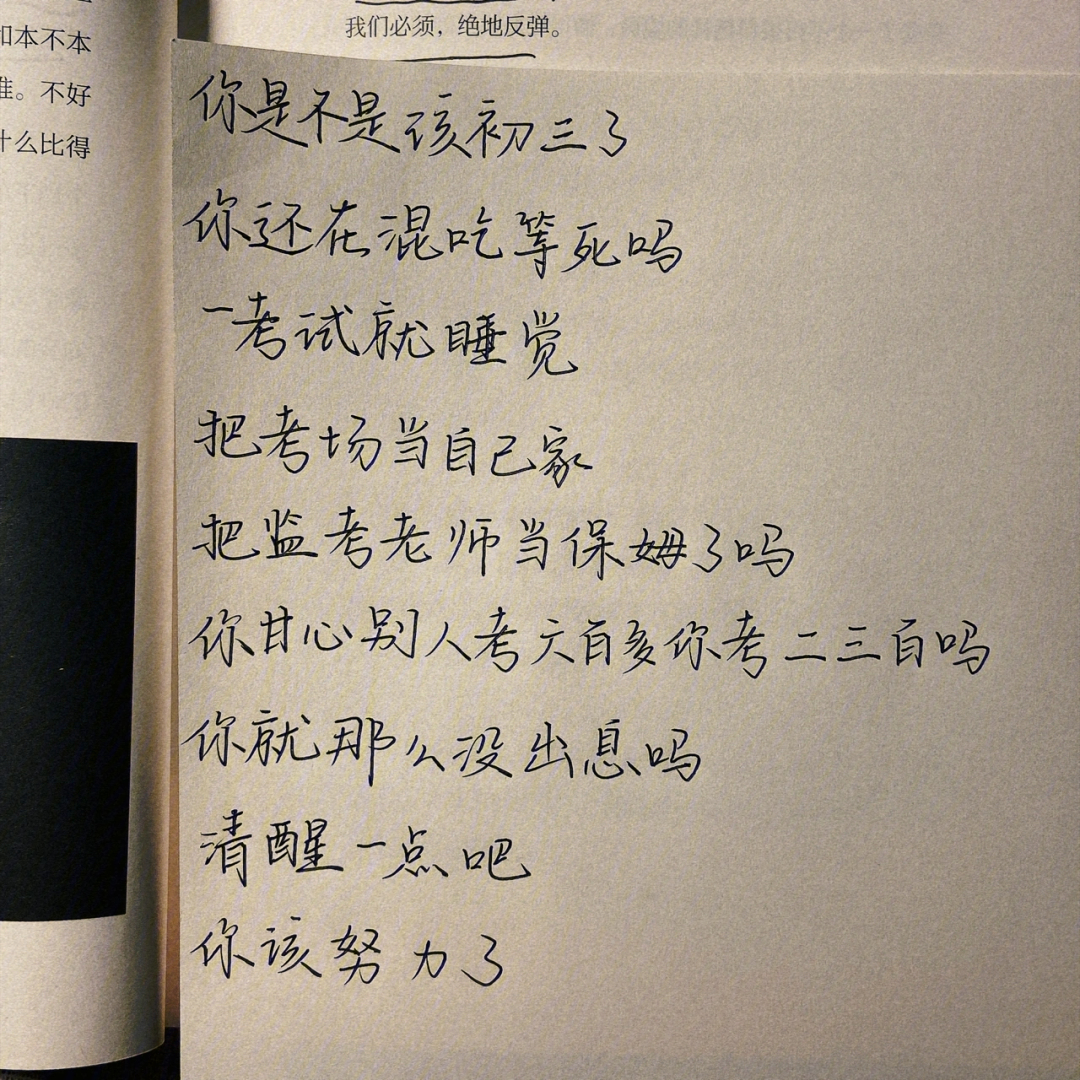 我们必须，绝地反弹。
和本不本
准。不好
什么比得
你是不是该初三了
你还在混吃等死吗
一考试就睡觉
把考场当自己家
把监考老师当保姆了吗
你甘心别人考六百多你考二三百吗
你就那么没出息吗
清醒一点吧
你该努力了